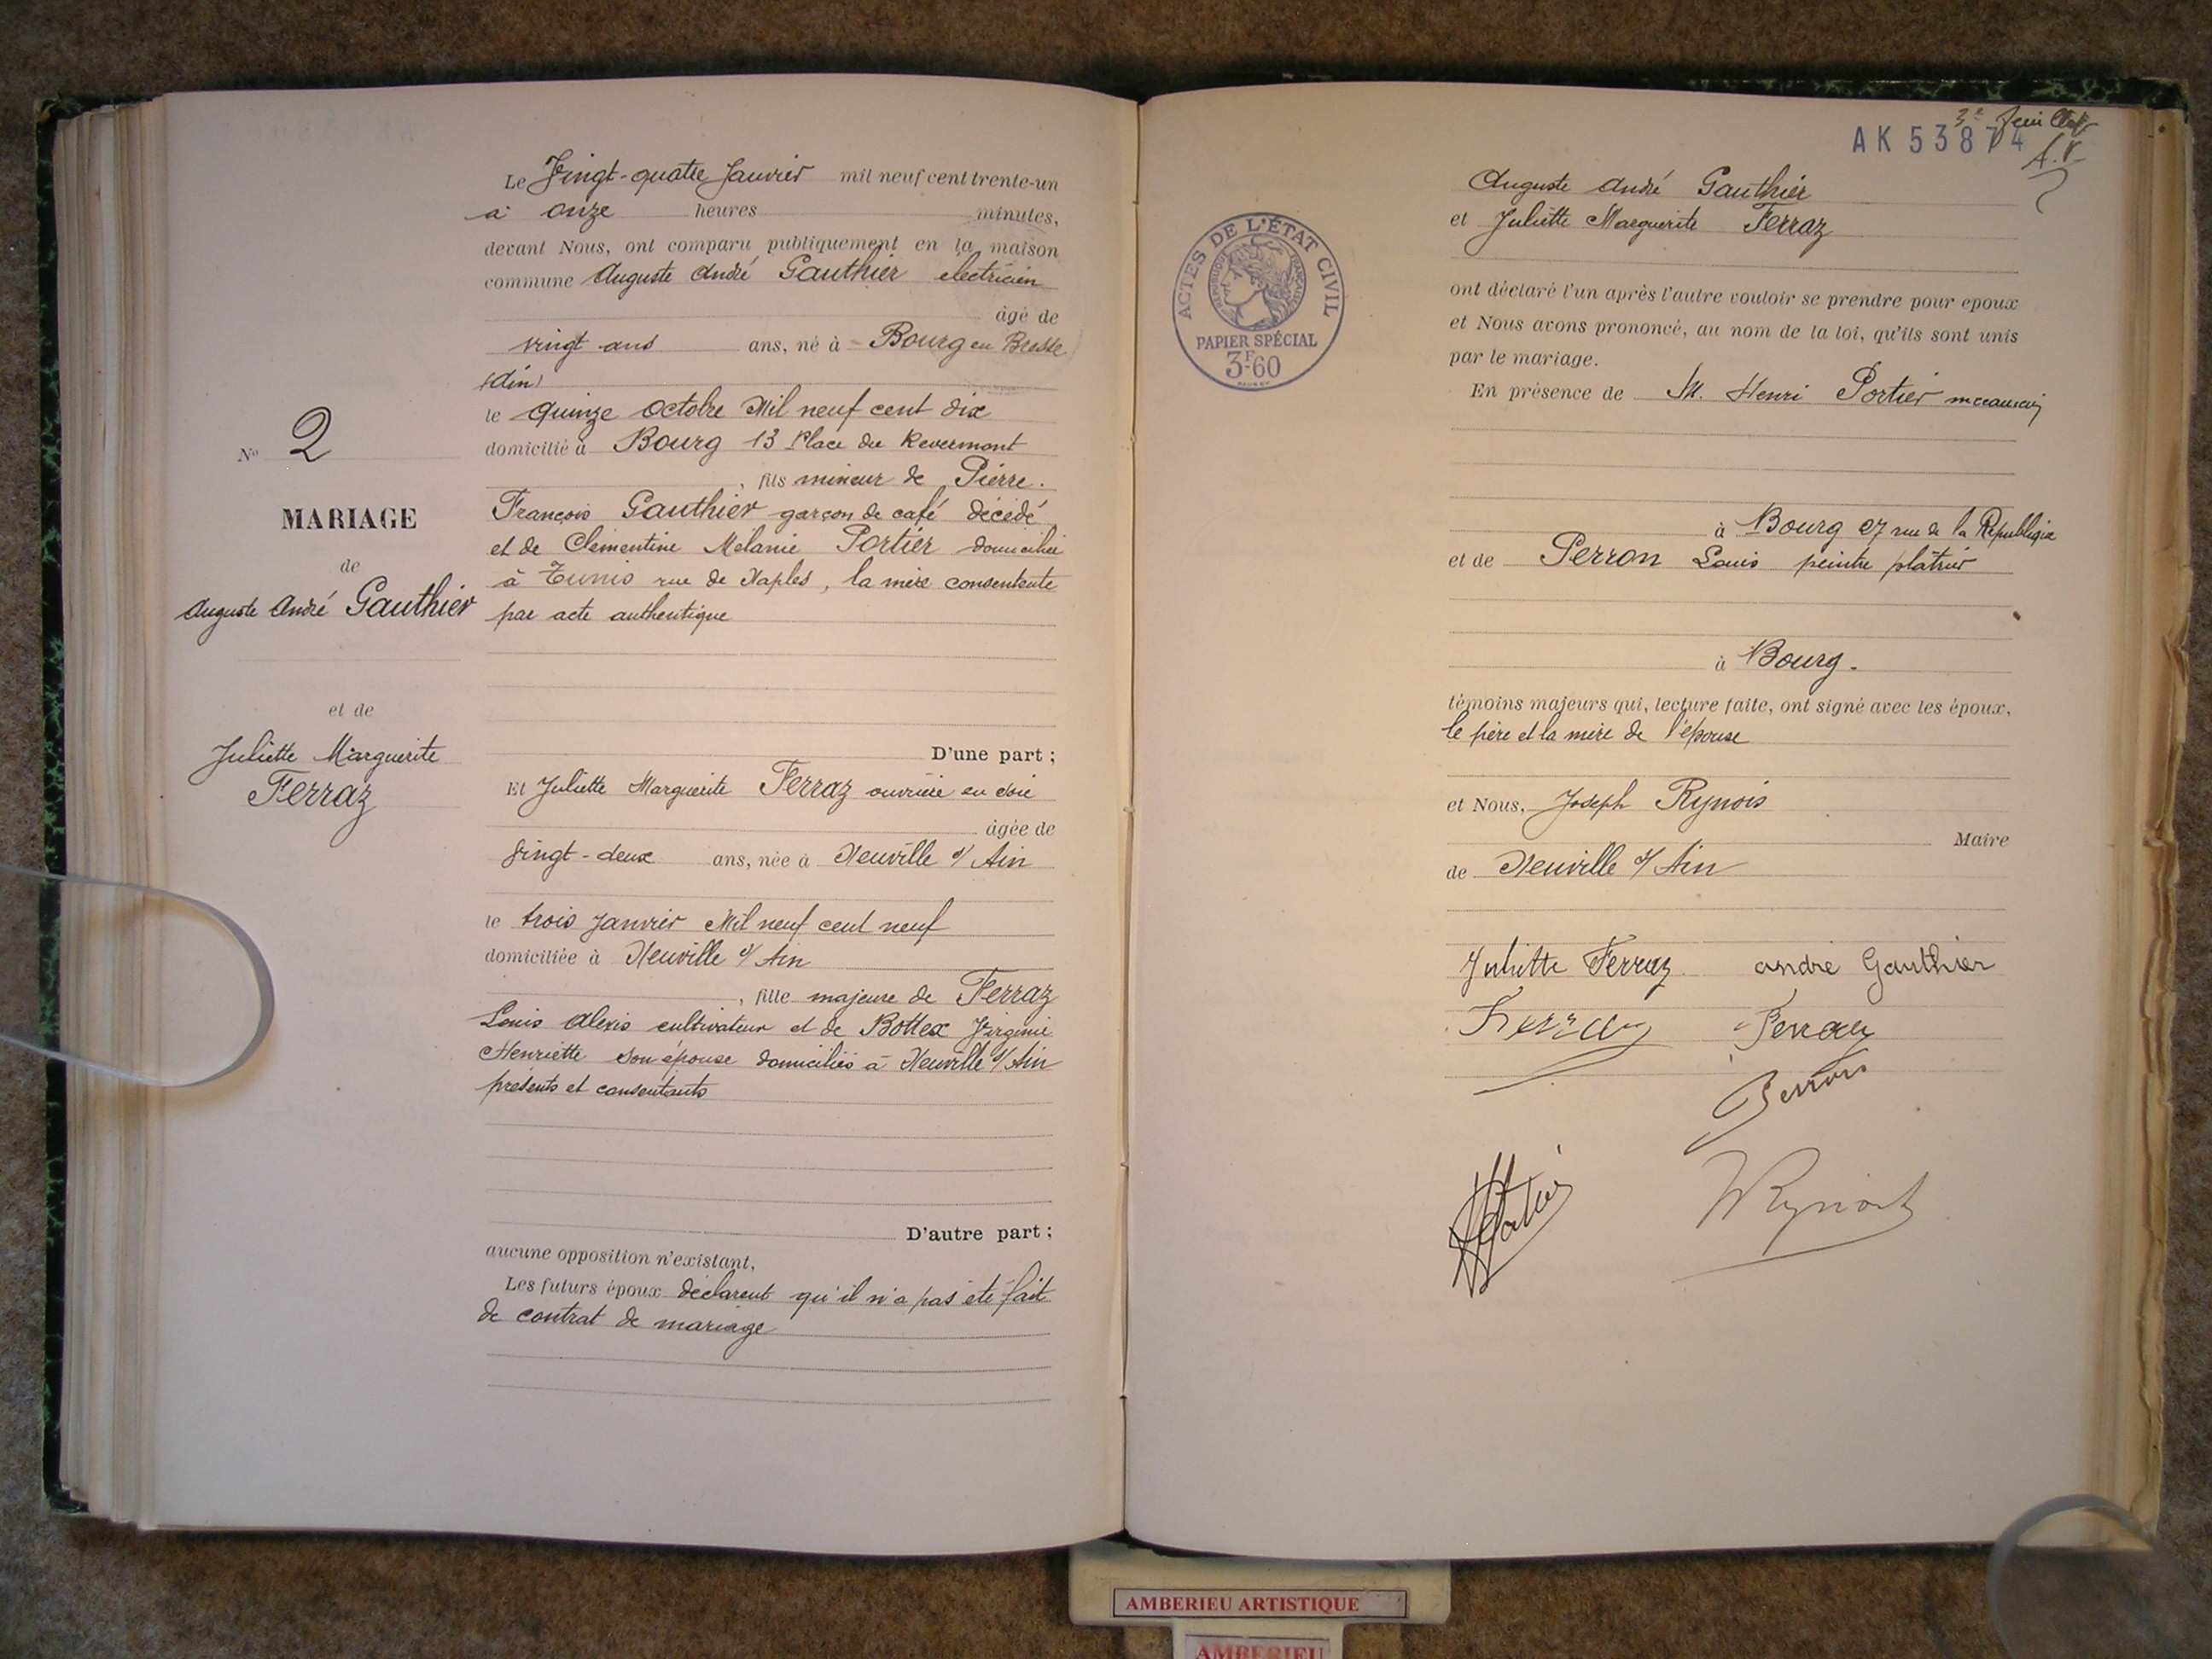 Le Vingt-quatre Janvier mil neuf cent trente-un
à onze heures minutes,
devant Nous, ont comparu publiquement en la maison
commune Auguste André Gauthier electricien
âgé de
vingt ans ans, né à Bourg en Bresse
(Ain)
le quinze octobre Mil neuf cent dix
domicilié à Bourg 13 Place du Revermont
, fils mineur de Pierre.
François Gauthier garçon de café décédé
et de Clementine Mélanie Portier domiciliée
à Tunis rue de Naples, la mère consentante
par acte authentique
No 2
MARIAGE
de
Auguste André Gauthier
et de
Juliette Marguerite
Ferraz
D'une part ;
Et Juliette Marguerite Ferraz ouvrière en soie
âgée de
Vingt-deux ans, née à Neuville s/ Ain
le trois Janvier Mil neuf cent neuf
domiciliée à Neuville s/ Ain
, fille majeure de Ferraz
Louis Alexis cultivateur et de Bottex Virginie
Henriette son épouse domiciliés à Neuville s/ Ain
présents et consentants
D'autre part ;
aucune opposition n'existant,
Les futurs époux déclarent qu'il n'a pas été fait
de contrat de mariage
3e feuillet
AK 53874
Auguste André Gauthier
et Juliette Marguerite Ferraz
ont déclaré l'un après l'autre vouloir se prendre pour époux
et Nous avons prononcé, au nom de la loi, qu'ils sont unis
par le mariage.
En présence de M. Henri Portier
à Bourg 27 rue de la République
et de Perron Louis peintre plâtrier
à Bourg.
témoins majeurs qui, lecture faite, ont signé avec les époux,
le père et la mère de l'épouse
et Nous, Joseph Rynois
Maire
de Neuville s/ Ain
Juliette Ferraz andré Gauthier
Ferraz Ferraz
Perron
ACTES DE L'ÉTAT CIVIL
RÉPUBLIQUE FRANÇAISE
PAPIER SPÉCIAL
3F60
AMBERIEU ARTISTIQUE
AMBERIEU